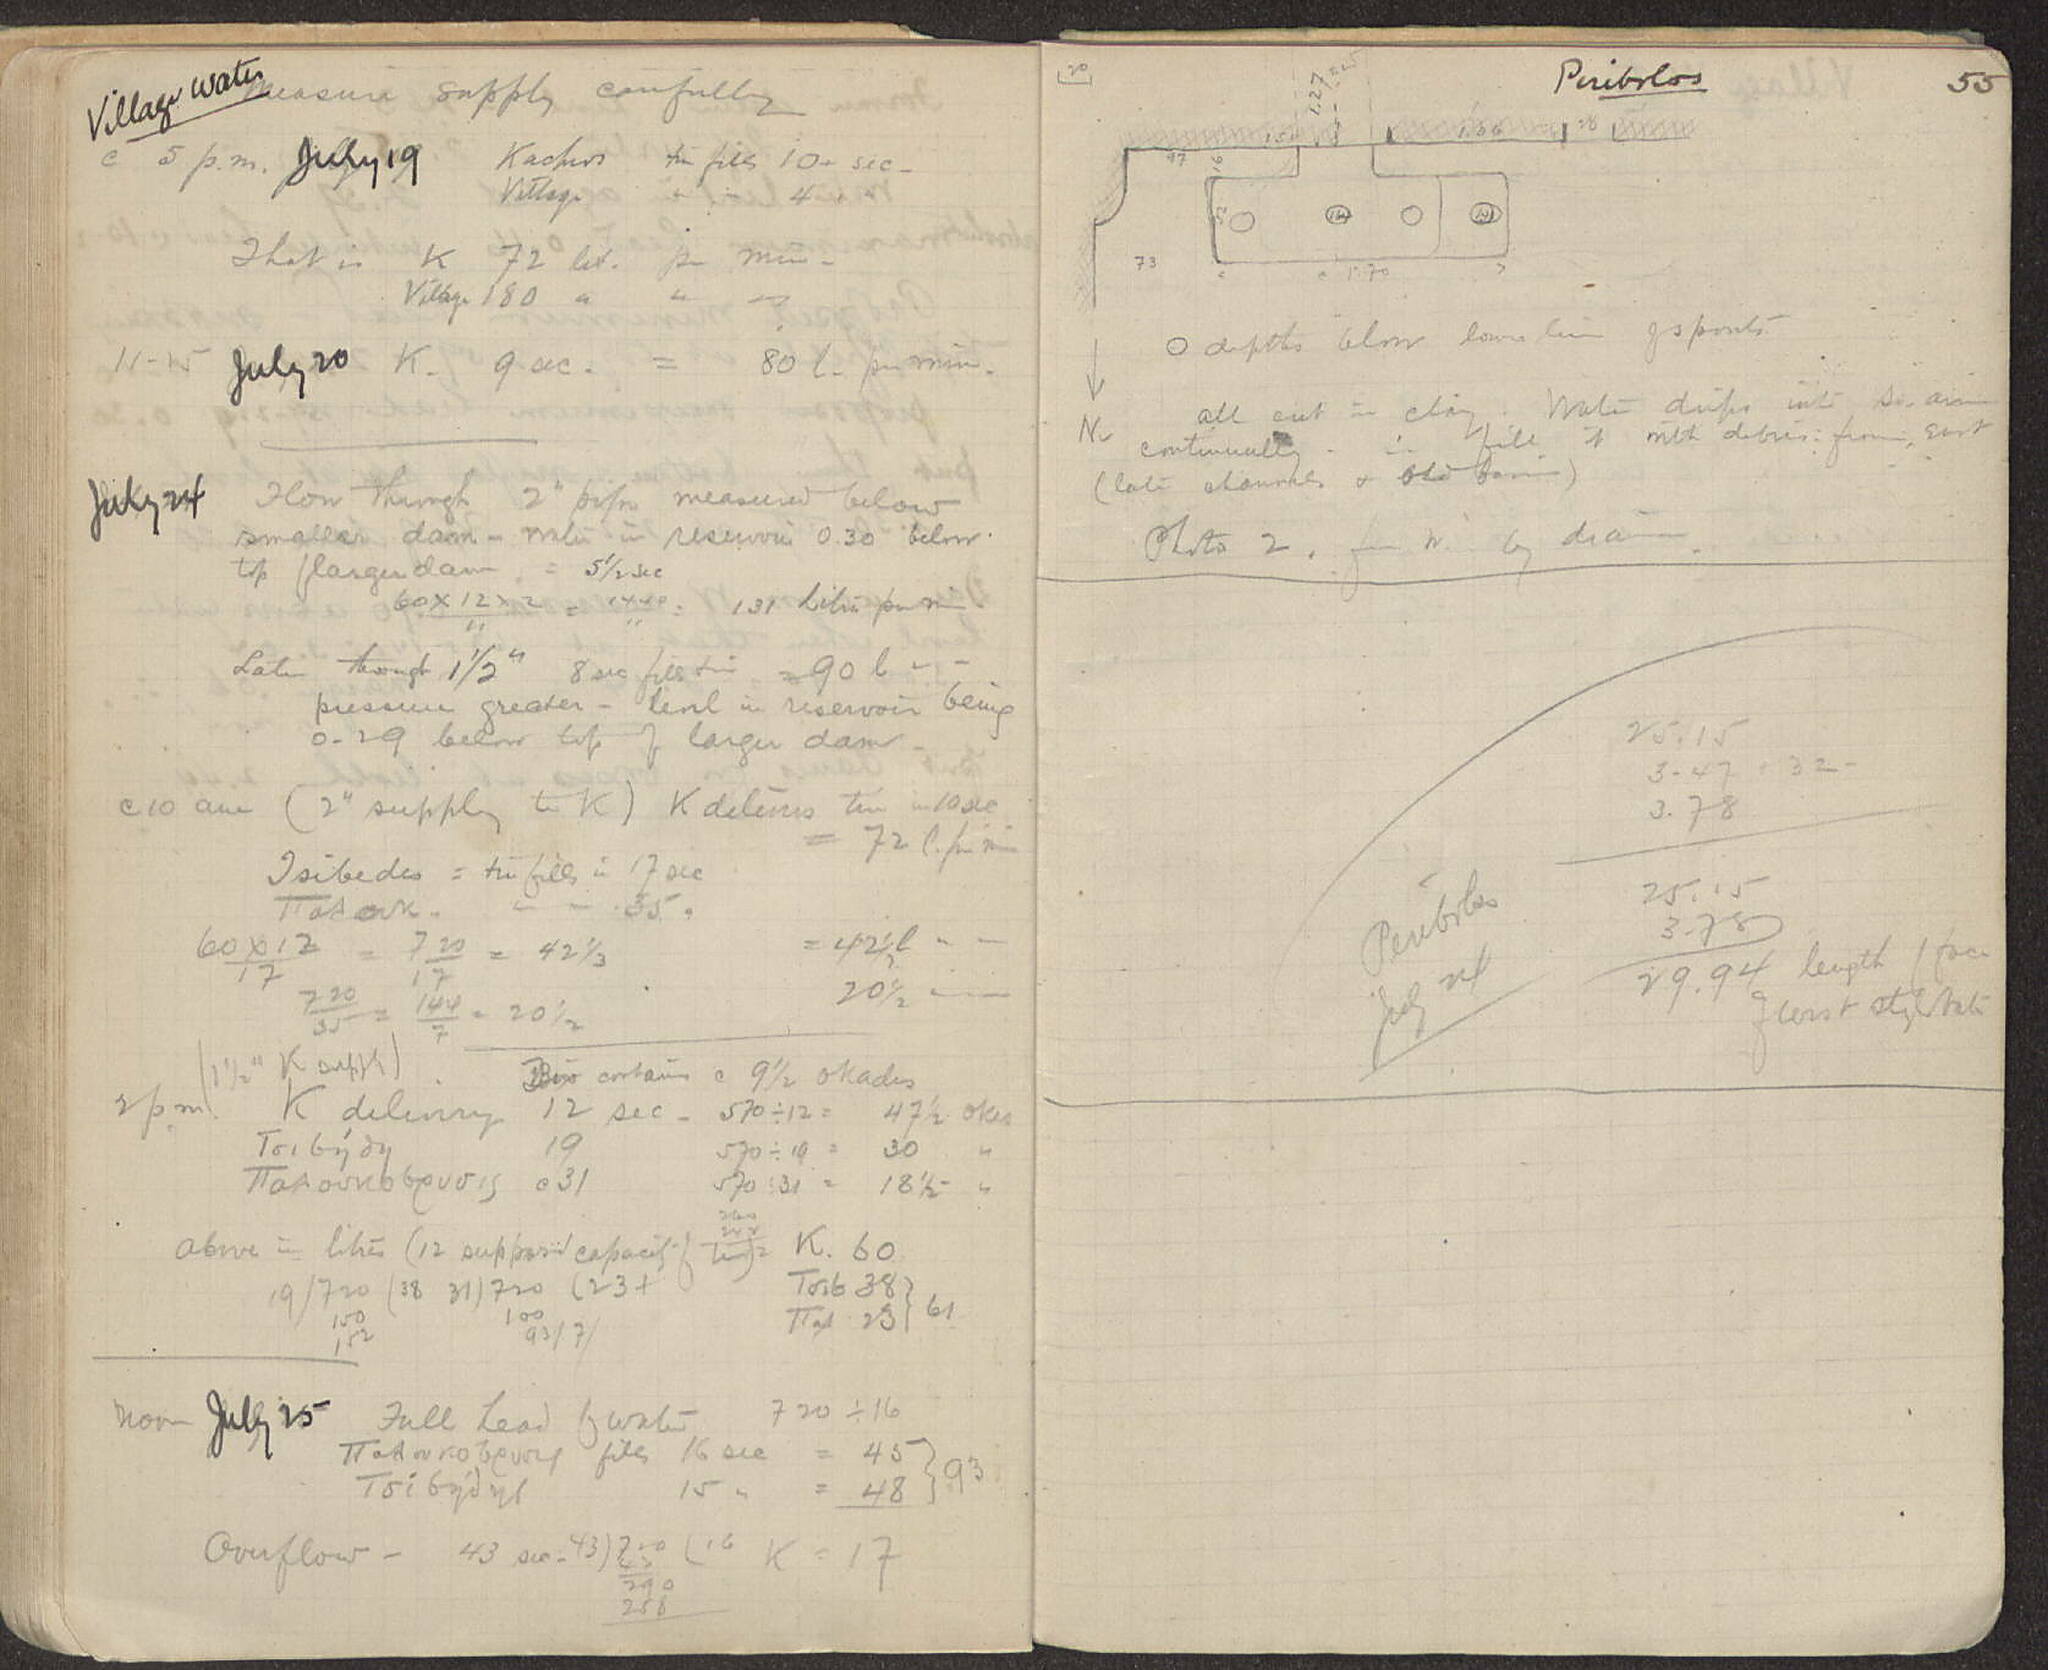 Village Water
Measure supply carefully
c 5 p.m. July 19 Kachos tin fills 10+ sec -
Village " - 4 - "
That is K 72 lit. per min -
Village 180 " " "
11-15 July 20 K. 9 sec. = 80 l. per min.
July 24 Flow through 2" pipe measured below
smaller dam - water in reservoir 0.30 below
top of larger dam = 5 1/2 sec
60 x 12 x 2 / 11 = 1440 / 11 = 131 litres per min
Later through 1 1/2" 8 sec fills tin = 90 l " -
pressure greater - level in reservoir being
0.29 below top of larger dam -
c 10 am (2" supply to K) K delivers tin in 10 sec
= 72 l. per min
Tsibedes = tin fills in 17 sec
Πατουκ. " - 35 "
60 x 12 / 17 = 720 / 17 = 42 1/3 = 42 1/3 l " -
720 / 35 = 144 / 7 = 20 1/2 20 1/2 " -
(1 1/2" K supply) contains c 9 1/2 okades
2 p.m. K delivery 12 sec - 570 ÷ 12 = 47 1/2 okes
Τσιβήδη 19 570 ÷ 19 = 30 "
Πατουκοβρυσις c 31 570 ÷ 31 = 18 1/2 "
above in litres (12 supposed capacity of tin) = K. 60
19/720 (38 31)720 (23+ Τσιβ 38 } 61
150 100 Πατ 23
152 93/7/
Noon July 25 Full head of water 720 ÷ 16
Πατουκοβρυσις fills 16 sec = 45 } 93
Τσιβήδης 15 " = 48
Overflow - 43 sec - 43)720 (16 K = 17
43
290
258
20
Peribolos 55
1.27
97 16
52
73 1.70
O depths below lower line of spouts
N.
all cut in clay. Water drips into S. drain
continually - fill it with debris from East
(late channels & old basin)
Photo 2. from W. by drain.
25.15
3.47 + 32 -
3.78
25.15
3.78
29.94 length of face
of lowest stylobate
Peribolos
July 24